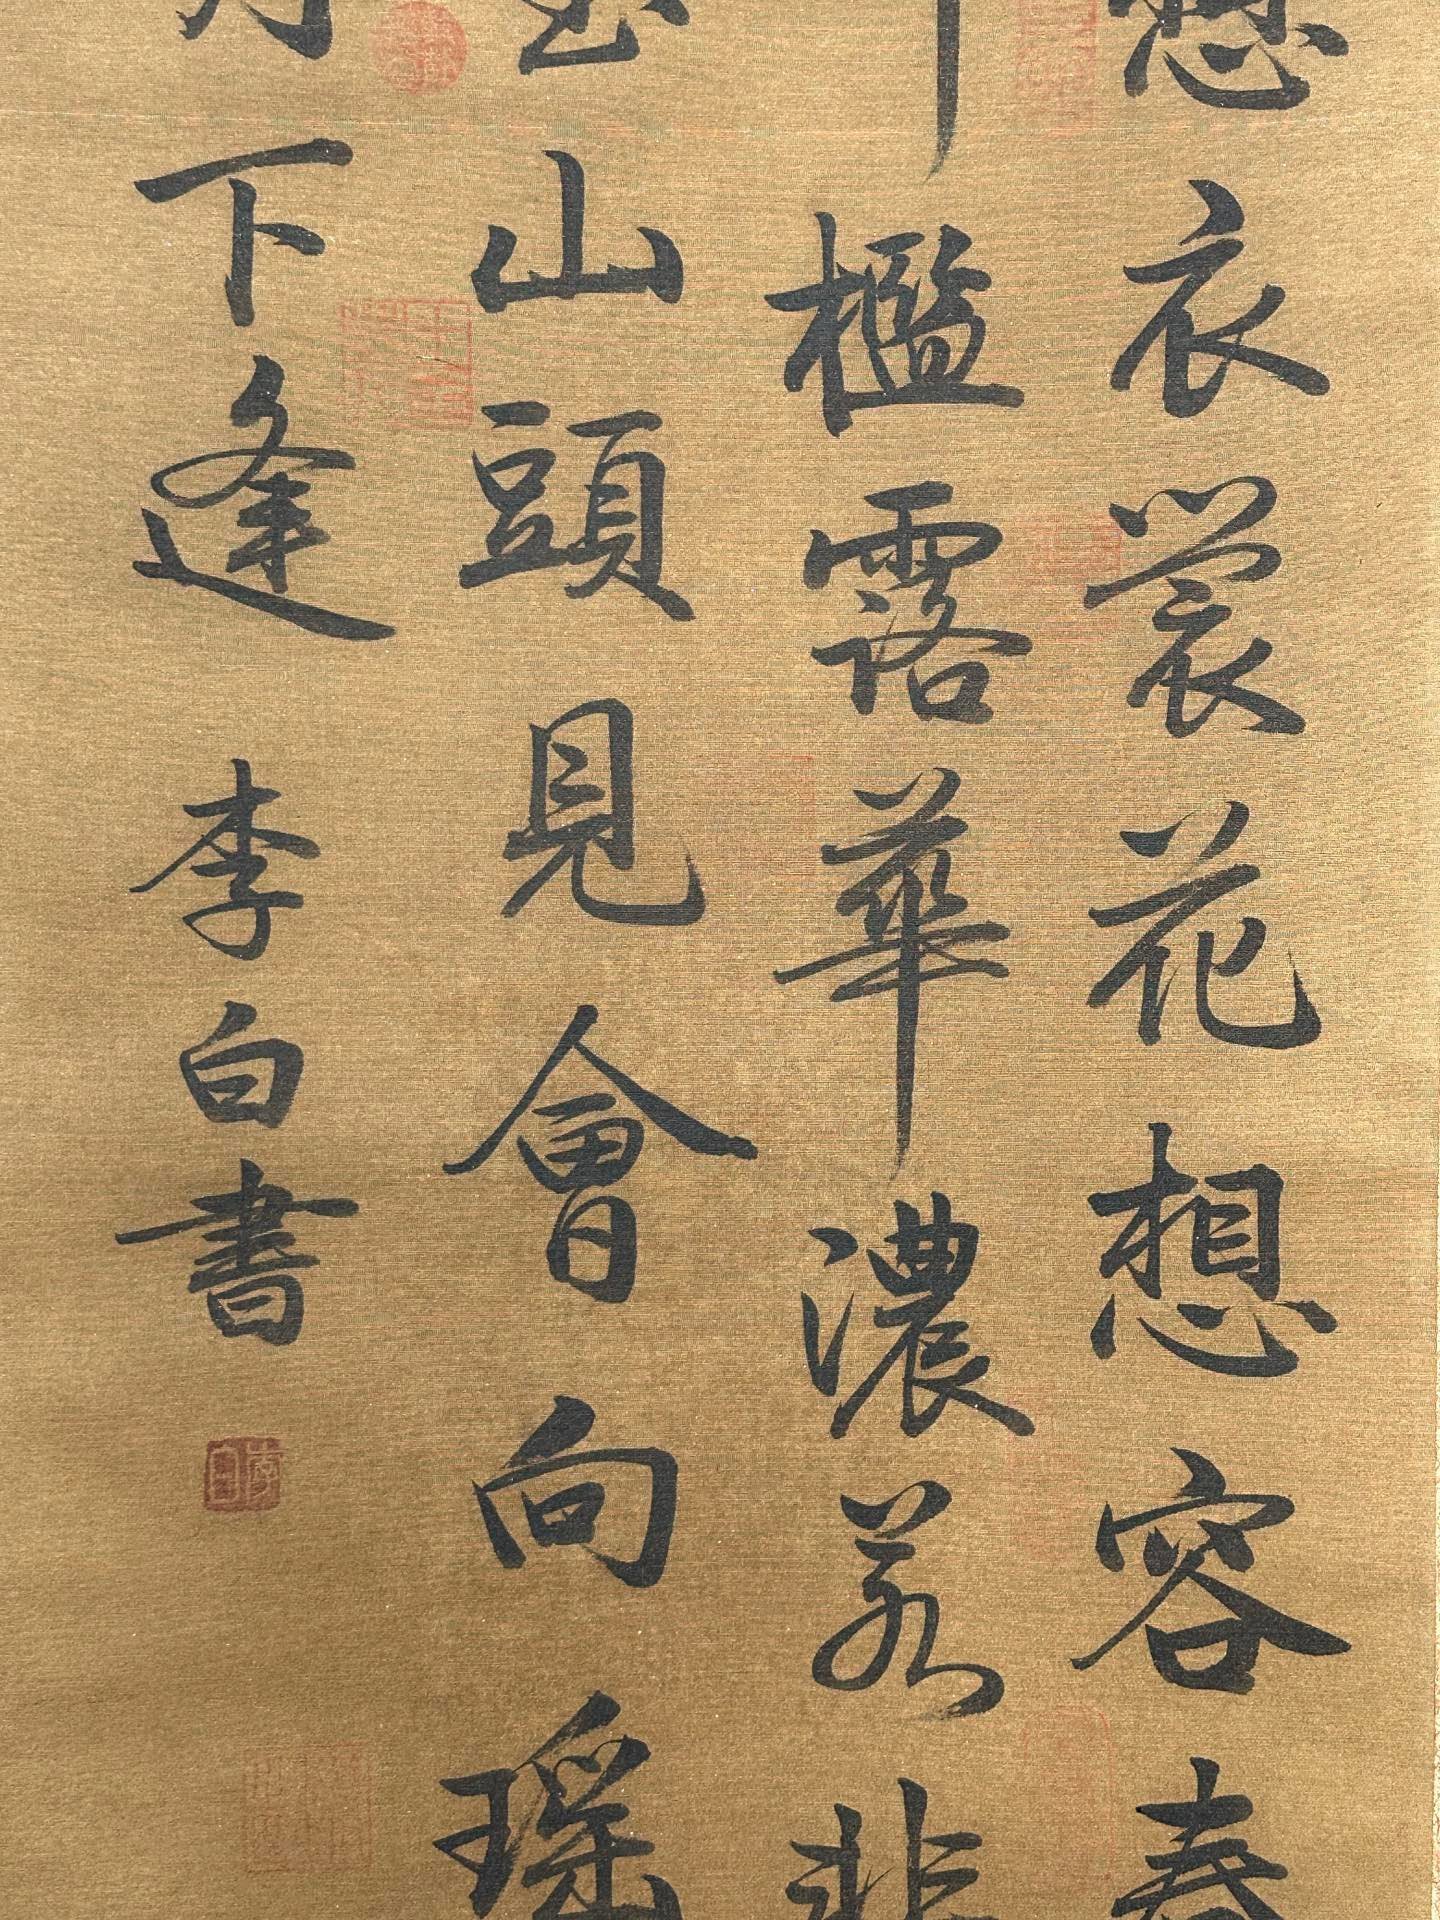 想衣裳花想容春
檻露華濃若非
山頭見會向瑤
下逢 李白書
李白